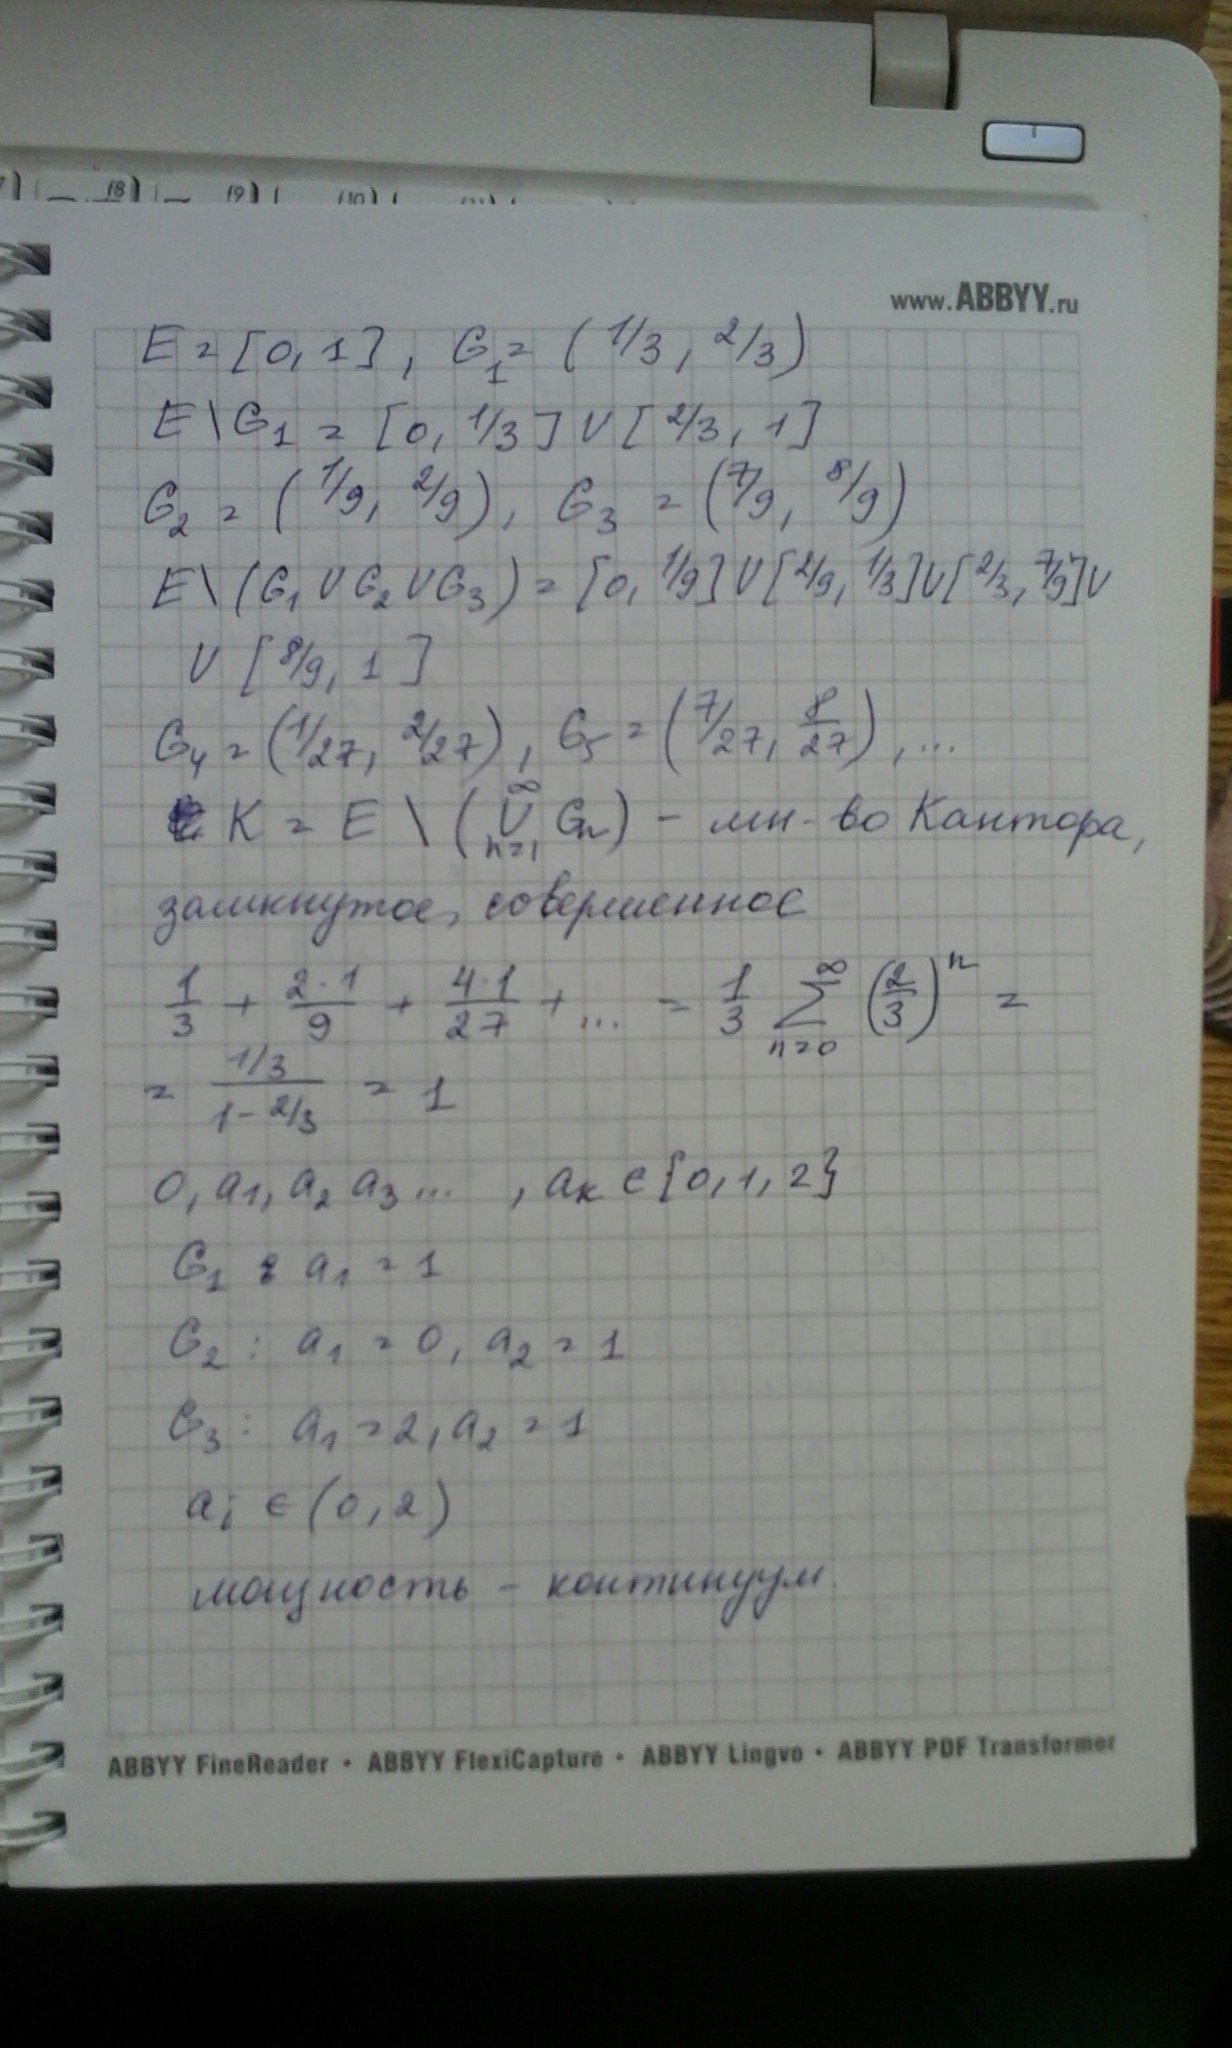 (8) (9) (10)
www.ABBYY.ru
E = [0, 1], G₁ = (1/3, 2/3)
E \ G₁ = [0, 1/3] ∪ [2/3, 1]
G₂ = (1/9, 2/9), G₃ = (7/9, 8/9)
E \ (G₁ ∪ G₂ ∪ G₃) = [0, 1/9] ∪ [2/9, 1/3] ∪ [2/3, 7/9] ∪
∪ [8/9, 1]
G₄ = (1/27, 2/27), G₅ = (7/27, 8/27), ...
K = E \ (∪ₙ₌₁^∞ Gₙ) - мн-во Кантора,
замкнутое, совершенное
1/3 + 2·1/9 + 4·1/27 + ... = 1/3 ∑ₙ₌₀^∞ (2/3)ⁿ =
= (1/3)/(1 - 2/3) = 1
0, a₁, a₂ a₃ ... , aₖ ∈ {0, 1, 2}
G₁ : a₁ = 1
G₂ : a₁ = 0, a₂ = 1
G₃ : a₁ = 2, a₂ = 1
aᵢ ∈ (0, 2)
мощность - континуум
ABBYY FineReader • ABBYY FlexiCapture • ABBYY Lingvo • ABBYY PDF Transformer